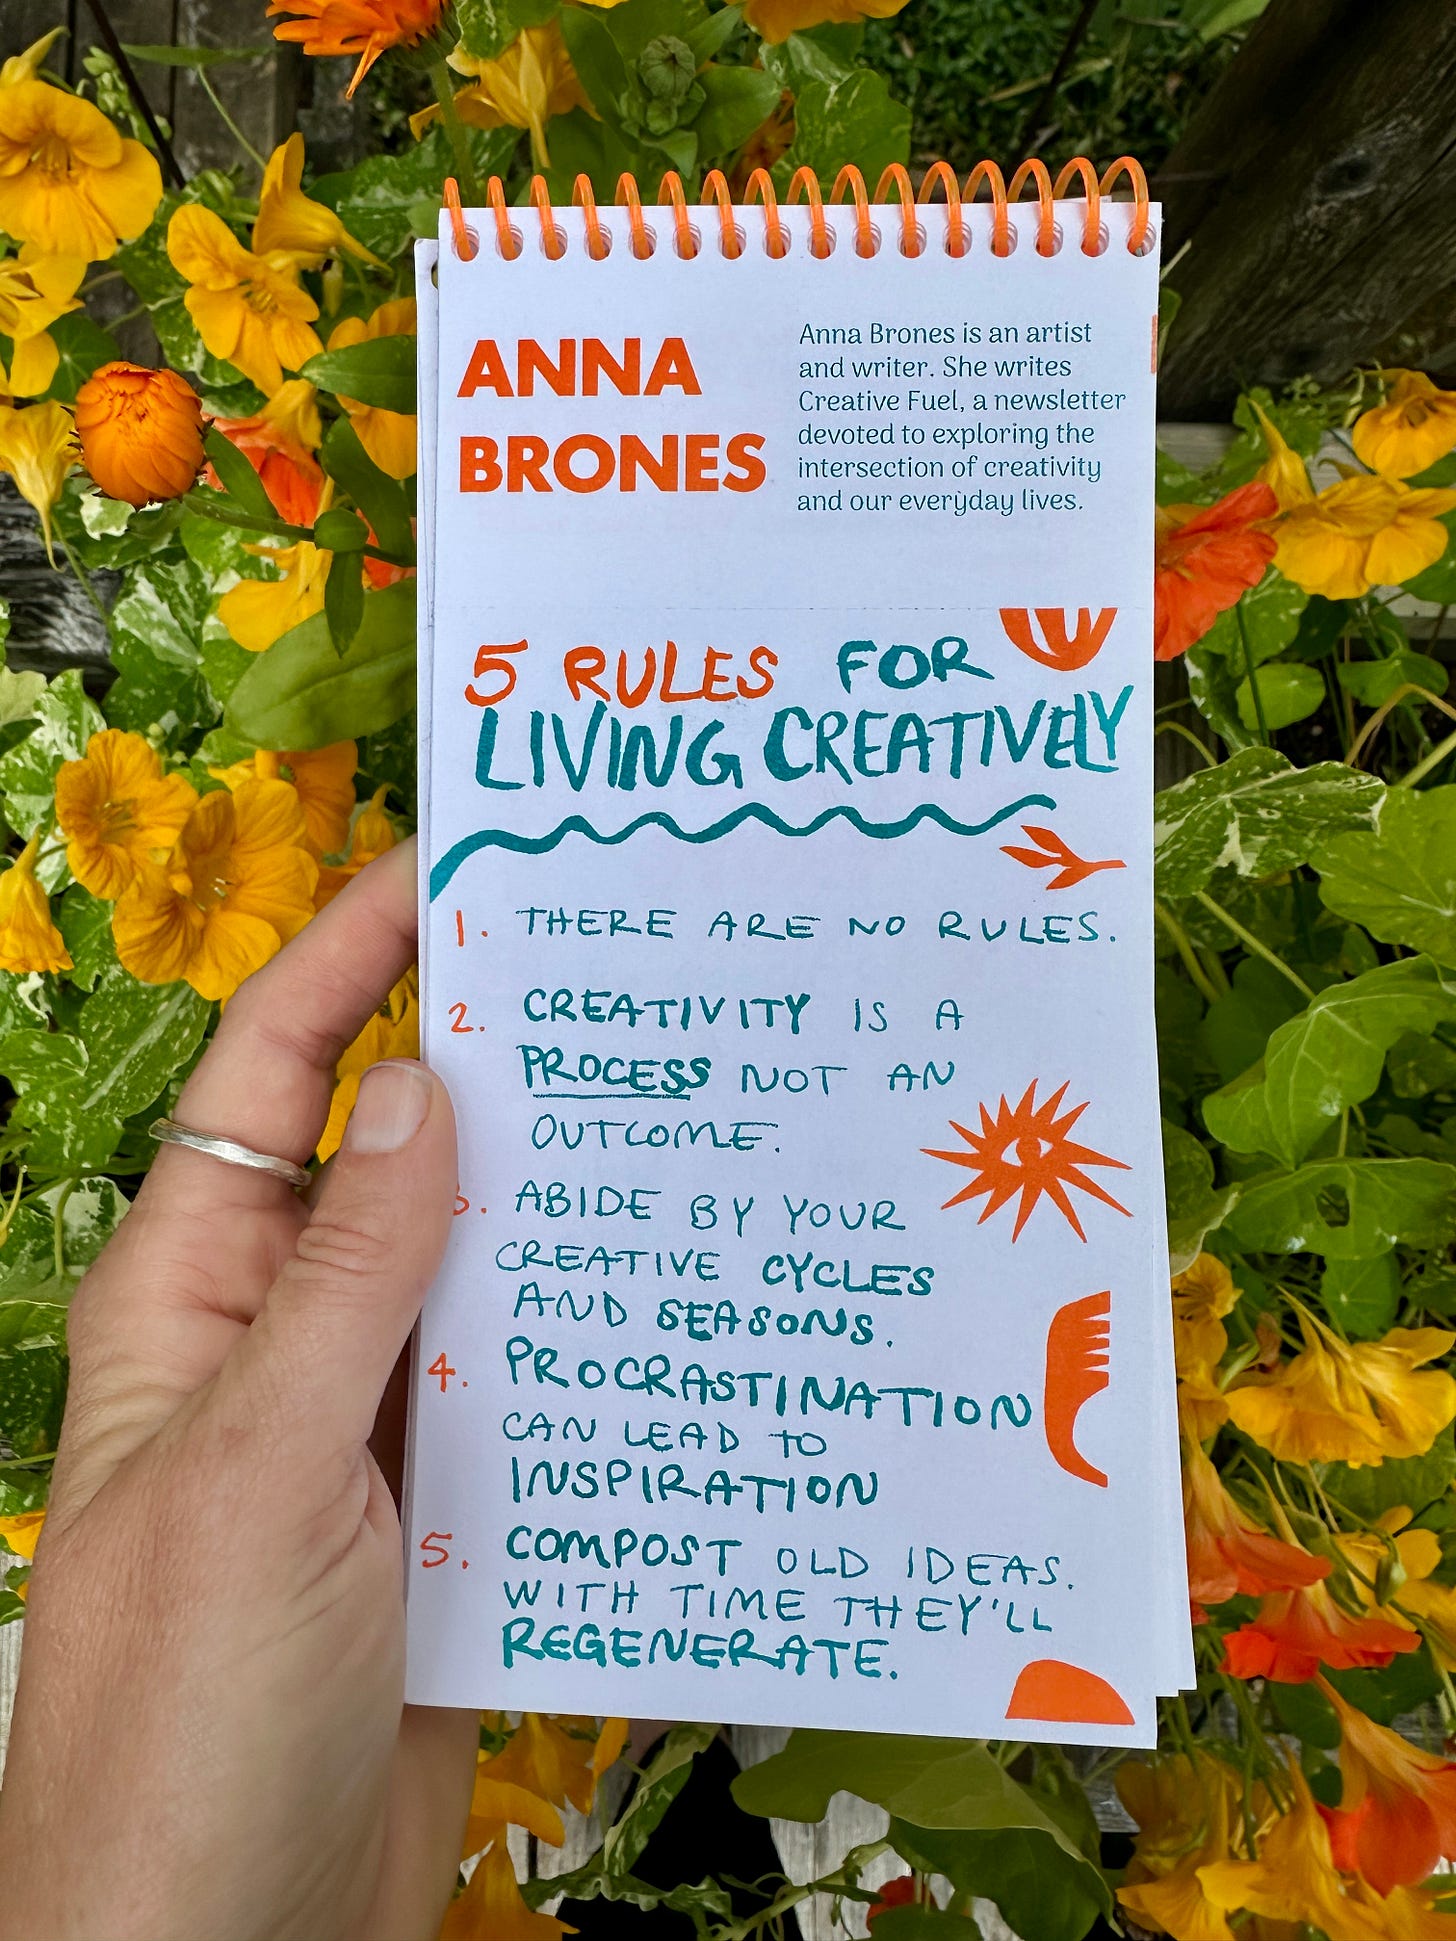 ANNA
BRONES
Anna Brones is an artist
and writer. She writes
Creative Fuel, a newsletter
devoted to exploring the
intersection of creativity
and our everyday lives.
5 RULES FOR
LIVING CREATIVELY
1. THERE ARE NO RULES.
2. CREATIVITY IS A
PROCESS NOT AN
OUTCOME.
3. ABIDE BY YOUR
CREATIVE CYCLES
AND SEASONS.
4. PROCRASTINATION
CAN LEAD TO
INSPIRATION
5. COMPOST OLD IDEAS.
WITH TIME THEY'LL
REGENERATE.